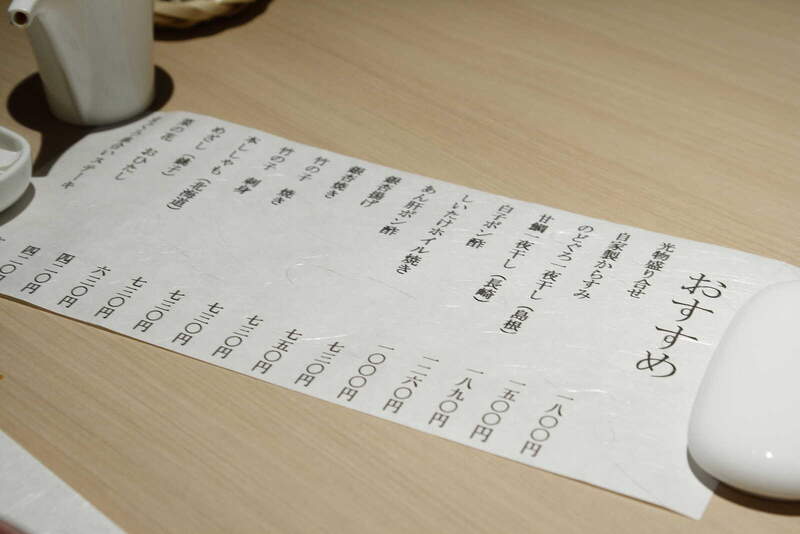 おすすめ
光物盛り合せ 一八〇〇円
自家製からすみ 一五〇〇円
のどくろ一夜干し（島根） 一八九〇円
甘鯛一夜干し（長崎） 一二六〇円
白子ポン酢 一〇〇〇円
しいたけホイル焼き 七三〇円
あん肝ポン酢 七五〇円
銀杏揚げ 七三〇円
銀杏焼き 七三〇円
竹の子 焼き 七三〇円
竹の子 刺身 六三〇円
本ししゃも（北海道） 四二〇円
めざし（銚子） 四二〇円
菜の花 おひたし
ステーキ